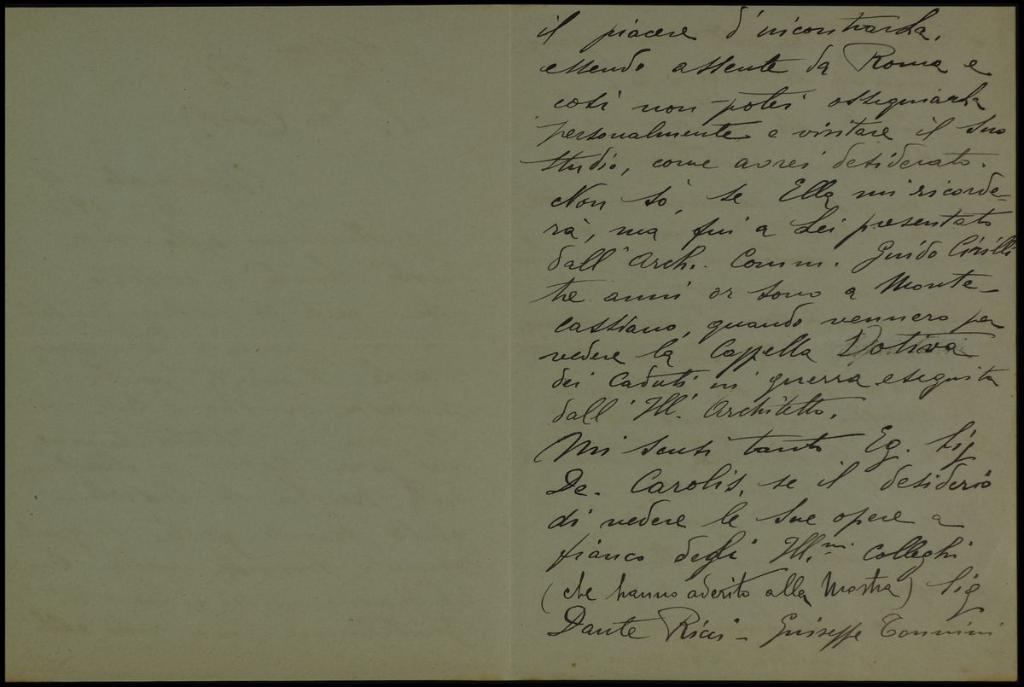 il piacere d'incontrarla,
essendo assente da Roma e
così non potei ossequiarla
personalmente e visitare il suo
studio, come avrei desiderato.
Non so, se Ella mi ricorde-
rà, ma fui a Lei presentato
dall'Arch. Comm. Guido Cirilli
tre anni or sono a Monte-
cassiano, quando vennero per
vedere la Cappella Votiva
dei Caduti in guerra eseguita
dall'Ill. Architetto.
Mi scusi tanto Eg. Sig
De. Carolis, se il desiderio
di vedere le Sue opere a
fianco degli Ill.mi Colleghi
(che hanno aderito alla Mostra) Sig
Dante Ricci - Giuseppe Tonnini